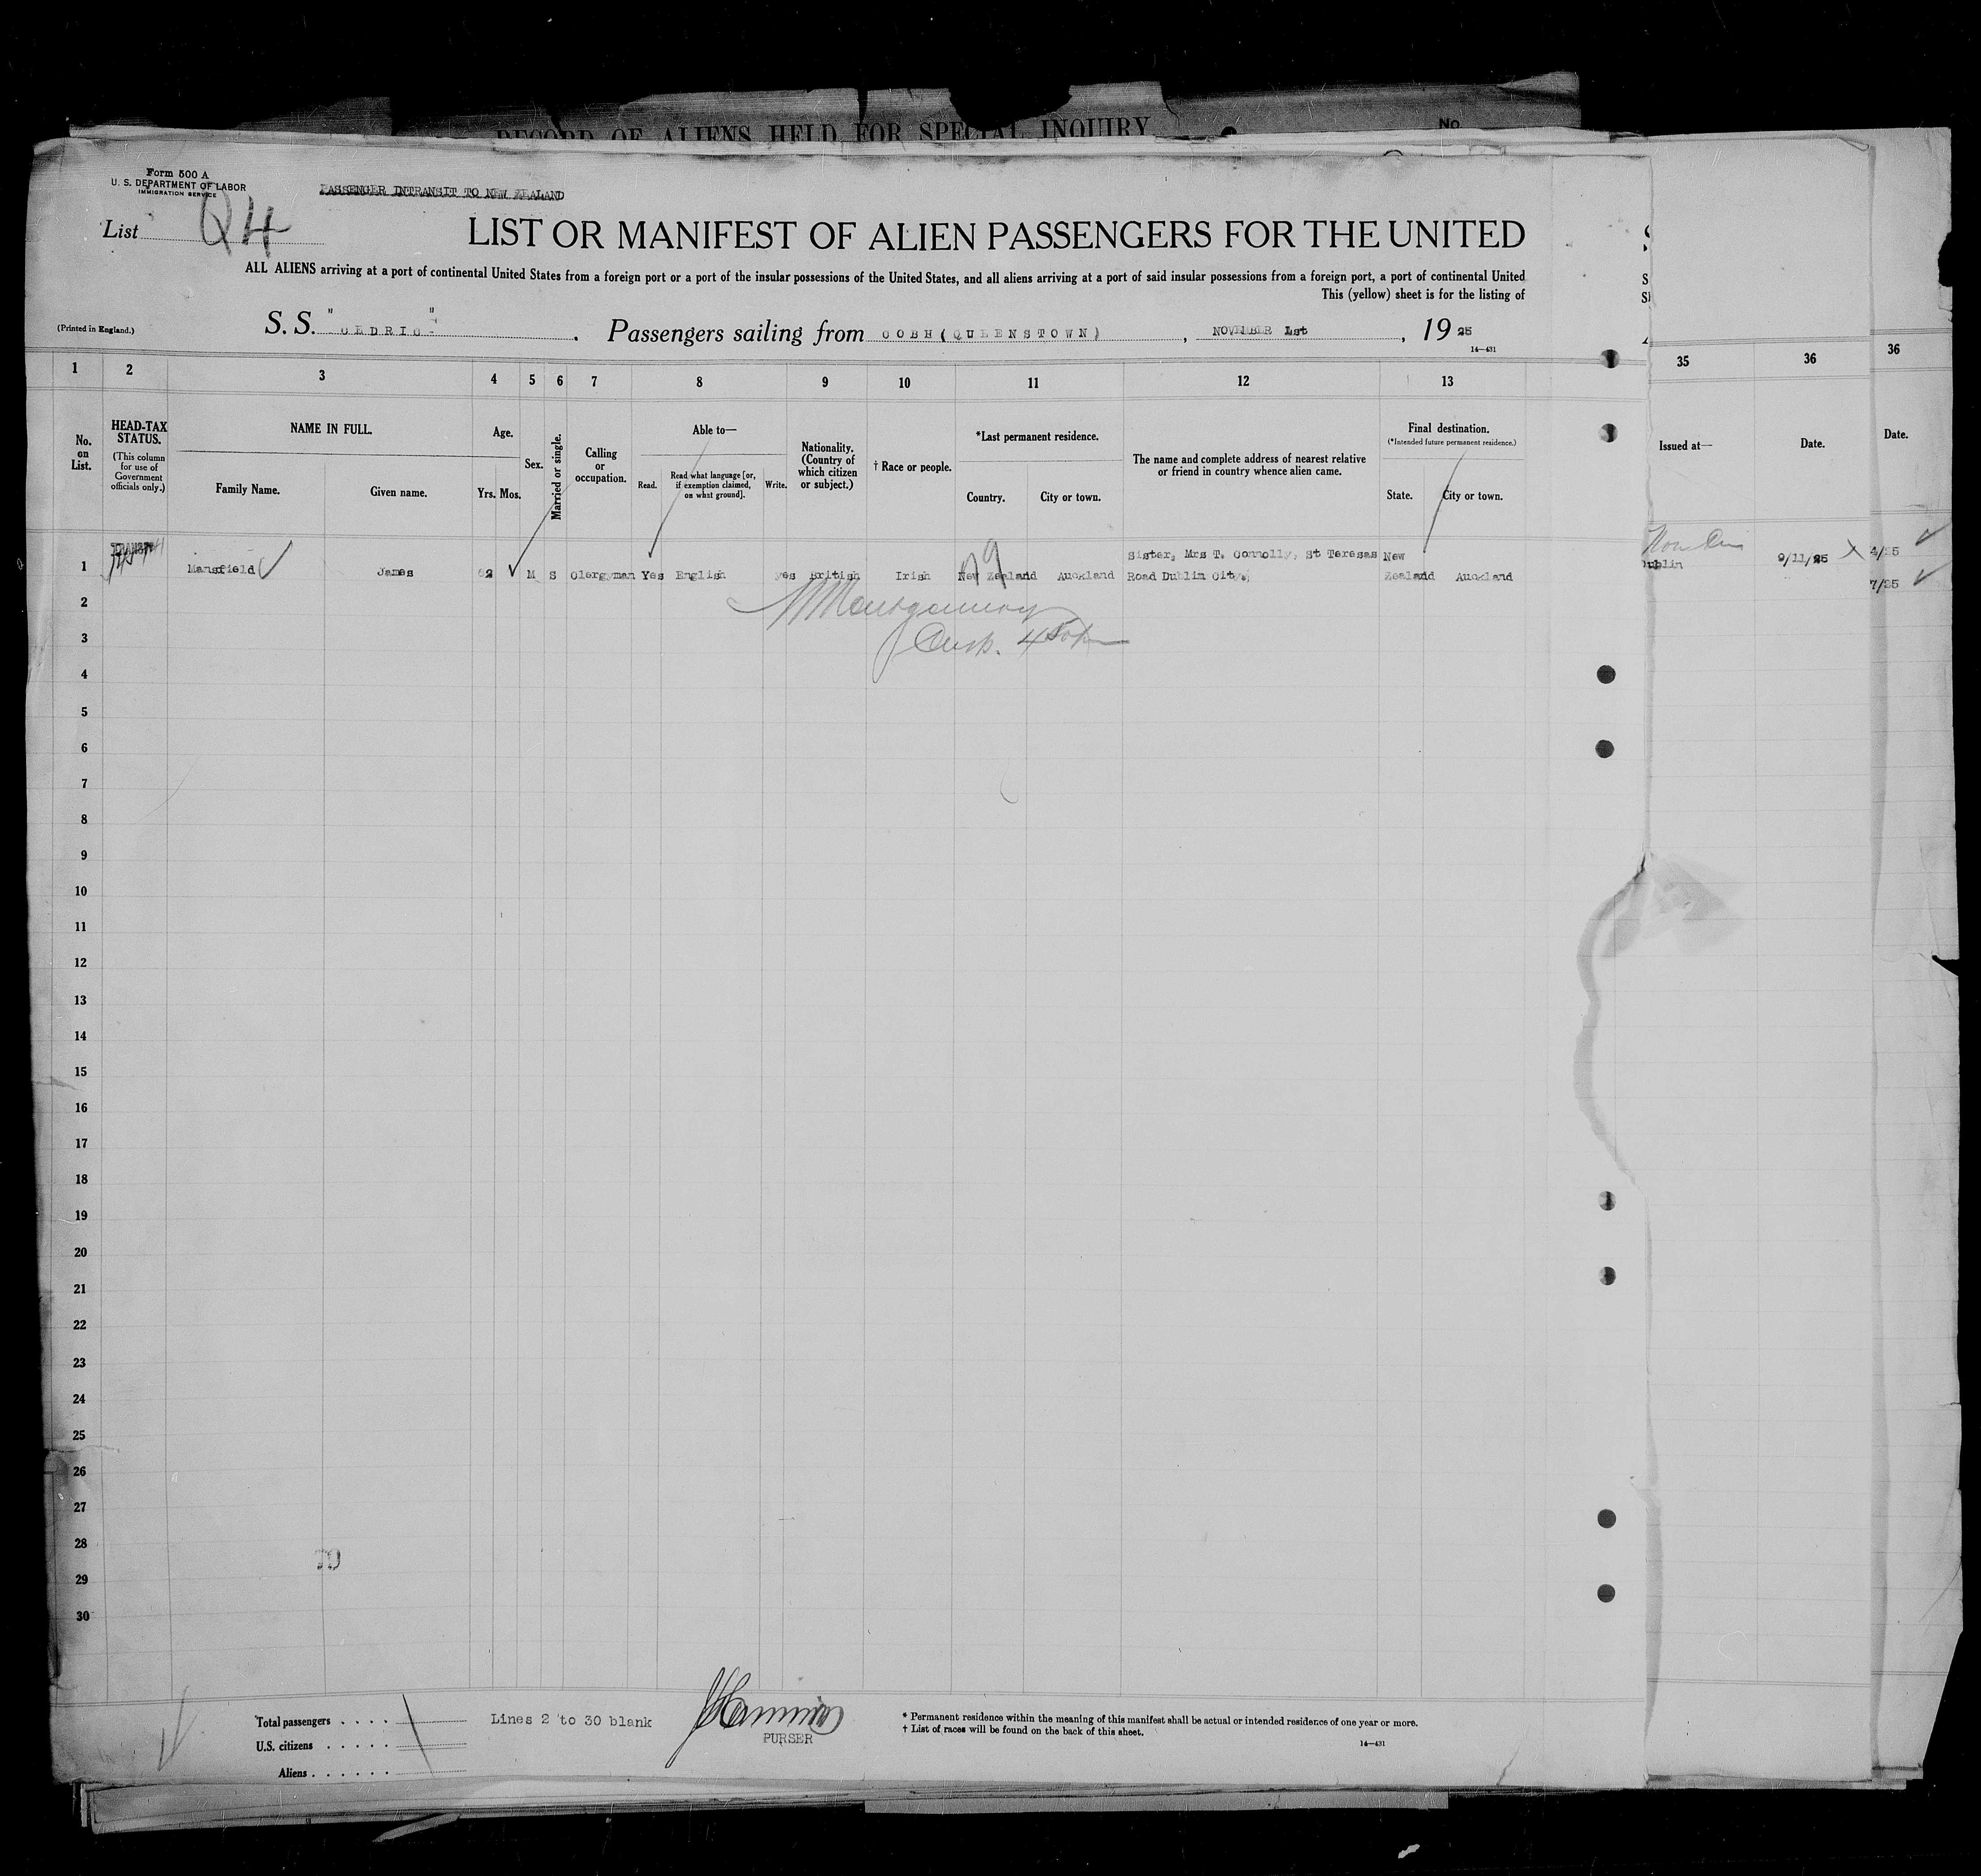 RECORD OF ALIENS HELD FOR SPECIAL INQUIRY
No.
Form 500 A
U. S. DEPARTMENT OF LABOR
IMMIGRATION SERVICE
PASSENGER INTRANSIT TO NEW ZEALAND
List 24
LIST OR MANIFEST OF ALIEN PASSENGERS FOR THE UNITED
ALL ALIENS arriving at a port of continental United States from a foreign port or a port of the insular possessions of the United States, and all aliens arriving at a port of said insular possessions from a foreign port, a port of continental United
This (yellow) sheet is for the listing of
(Printed in England.)
S. S. "CEDRIC". Passengers sailing from COBH (QUEENSTOWN), NOVEMBER 1st, 19 25
14—431
1 2 3 4 5 6 7 8 9 10 11 12 13 35 36 36
No. on List.
HEAD-TAX STATUS.
(This column for use of Government officials only.)
NAME IN FULL.
Family Name. Given name.
Age.
Yrs. Mos.
Sex.
Married or single.
Calling or occupation.
Able to—
Read. Read what language [or, if exemption claimed, on what ground]. Write.
Nationality. (Country of which citizen or subject.)
† Race or people.
*Last permanent residence.
Country. City or town.
The name and complete address of nearest relative or friend in country whence alien came.
Final destination.
(*Intended future permanent residence.)
State. City or town.
Issued at—
Date.
Date.
TRANSIT
Sister, Mrs T. Connolly, St Teresas New
1 Mansfield James 62 M S Clergyman Yes English yes British Irish New Zealand Auckland Road Dublin City, Zealand Auckland
Dublin 9/11/25 4/25
7/25
2
Montgomery
3
4
5
6
7
8
9
10
11
12
13
14
15
16
17
18
19
20
21
22
23
24
25
26
27
28
29
30
70
Total passengers
U.S. citizens
Aliens
Lines 2 to 30 blank
PURSER
* Permanent residence within the meaning of this manifest shall be actual or intended residence of one year or more.
† List of races will be found on the back of this sheet.
14—431